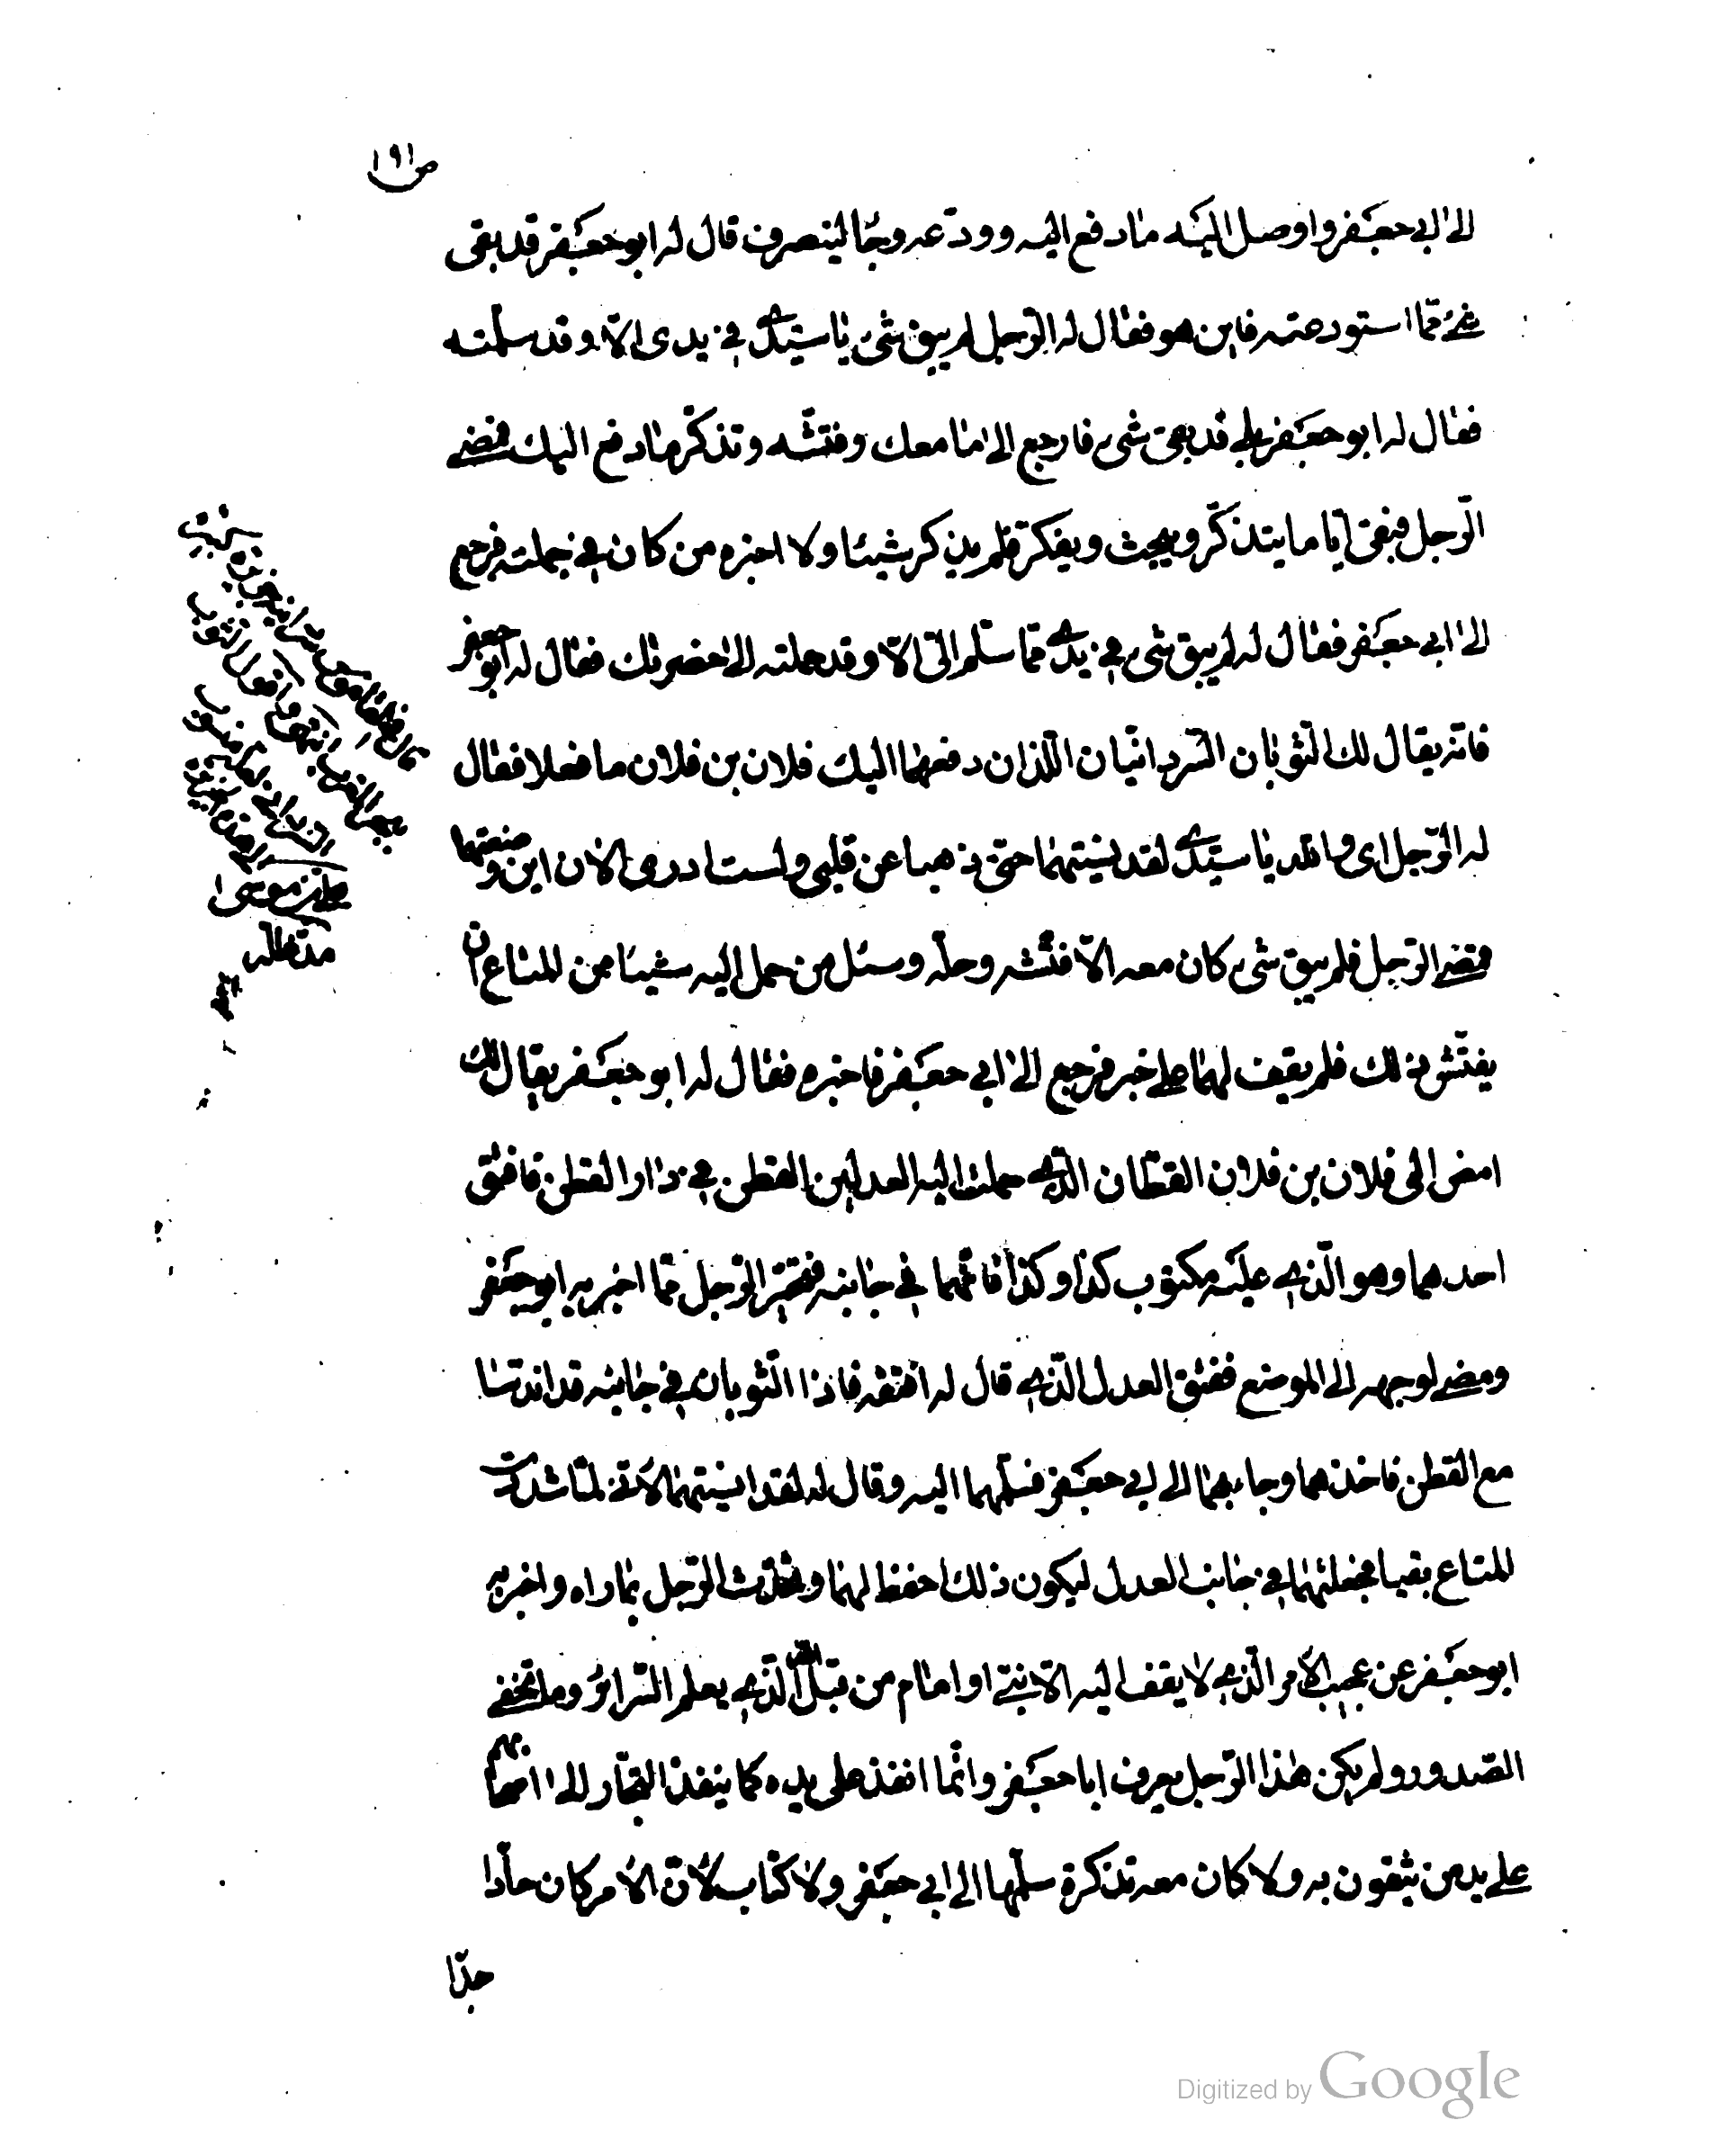 ص ١٩١
الى ابى جعفر واوصل اليه ما دفع اليه وودعه وجاء لينصرف قال له ابو جعفر قد بقى
شئ مما استودعته فاين هو فقال له الرجل لم يبق شئ يا سيدى فى يدى الا وقد سلمته
فقال له ابو جعفر بلى قد بقى شئ فارجع الى ما معك وفتشه وتذكر ما دفع اليك فمضى
الرجل فبقى اياما يتذكر ويبحث ويفكر فلم يذكر شيئا ولا اخبره من كان فى جملته فرجع
الى ابى جعفر فقال له لم يبق شئ فى يدى مما سلم الى الا وقد حملته الى حضرتك فقال له ابو جعفر
فانه يقال لك الثوبان السردانيان اللذان دفعهما اليك فلان بن فلان ما فعلا فقال
له الرجل اى والله يا سيدى لقد نسيتهما حتى ذهبا عن قلبى ولست ادرى الان اين وضعتهما
فمضى الرجل فلم يبق شئ كان معه الا فتشه وحله وسئل من حمل اليه شيئا من المتاع ان
يفتش ذلك فلم يقف لهما على خبر فرجع الى ابى جعفر فاخبره فقال له ابو جعفر يقال لك
امض الى فلان بن فلان القطان الذى حملت اليه العدلين القطن فى دار القطن فافتق
احدهما وهو الذى عليه مكتوب كذا وكذا فانهما فى جانبه فتحير الرجل مما اخبر به ابو جعفر
ومضى لوجهه الى الموضع ففتق العدل الذى قال له افتقه فاذا الثوبان فى جانبه قد اندسا
مع القطن فاخذهما وجاء بهما الى ابى جعفر فسلمهما اليه وقال له لقد انسيتهما لانى لما شددت
المتاع بقيا فجعلتهما فى جانب العدل ليكون ذلك احفظ لهما وتحدث الرجل بما راه واخبر به
ابو جعفر عن عجيب الامر الذى لا يقف اليه الا نبى او امام من قبل الله الذى يعلم السرائر وما تخفى
الصدور ولم يكن هذا الرجل يعرف ابا جعفر وانما انفذ على يده كما ينفذ التجار الى اصحابهم
على يد من يثقون به ولا كان معه تذكرة سلمها الى ابى جعفر ولا كتاب لان الامر كان حادا
جدا
على بن موسى
مد ظله
Digitized by Google